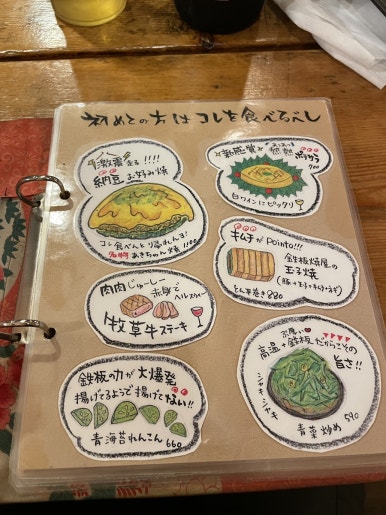 初めての方はコレを食べるべし
激震走る!!!!
納豆お好み焼
コレ食べんと帰れんよ!
名物 あきちゃん焼 1100
新感覚
ポテサラ
700
白ワインにピッタリ
キムチがPoint!!!
鉄板焼屋の
玉子焼
(豚+玉子+キムチ+ネギ)
とん平巻き 880
肉肉じゅーしー
赤身で
ヘルスィー
牧草牛ステーキ
鉄板の力が大爆発
揚げてるようで揚げてない!!
青海苔れんこん 660
分厚い
高温+鉄板だからこその
旨さ!!
シャキシャキ
青菜炒め 590